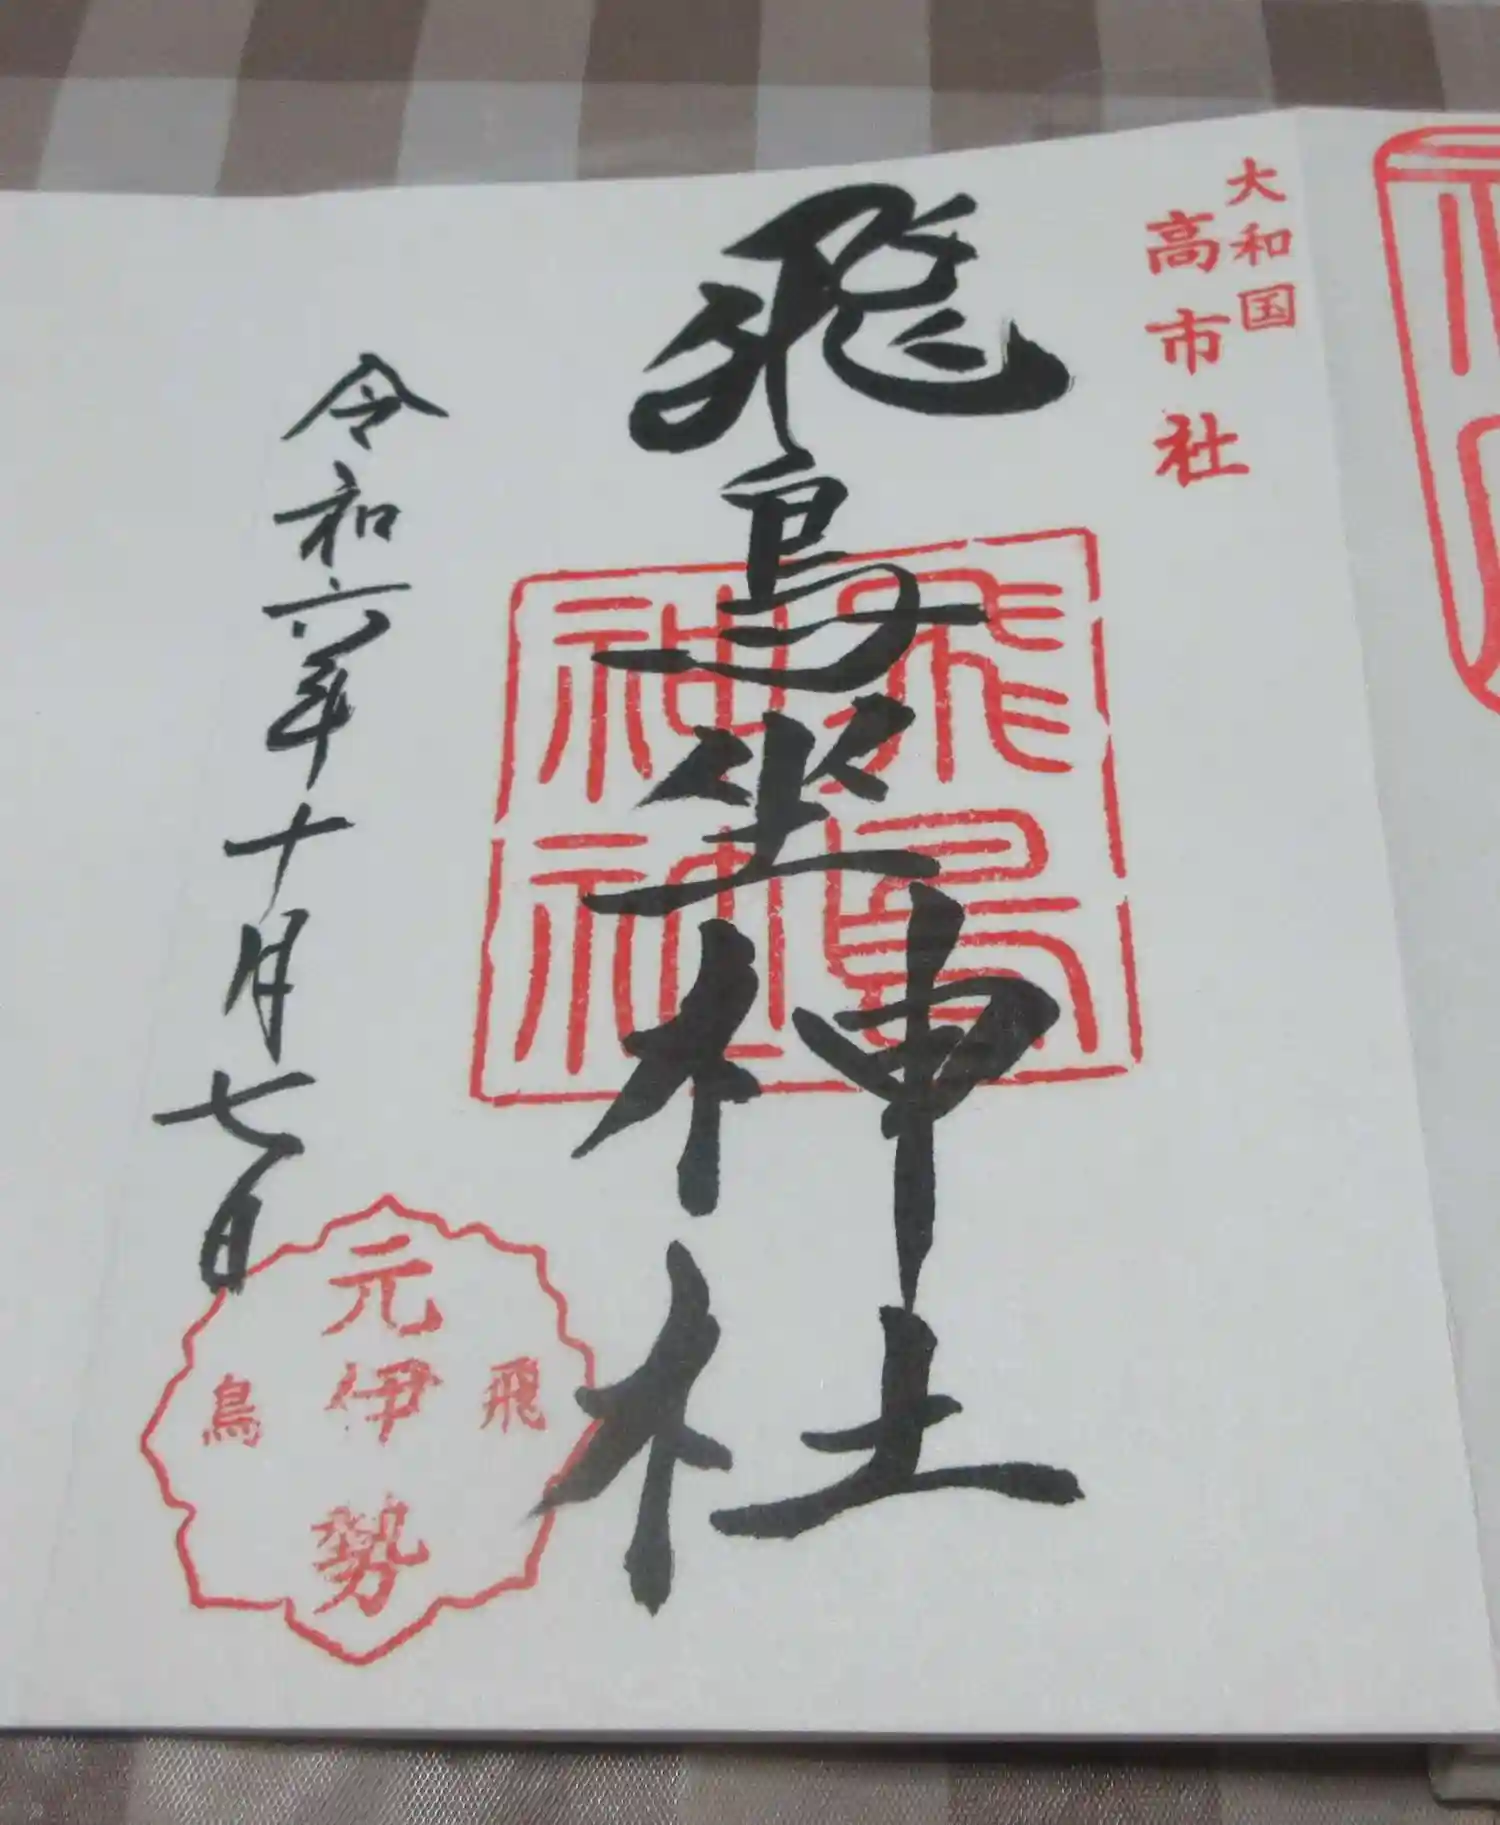 大和国
高市社
飛鳥坐神社
飛鳥
神社
令和六年十月七日
飛
元伊勢
鳥